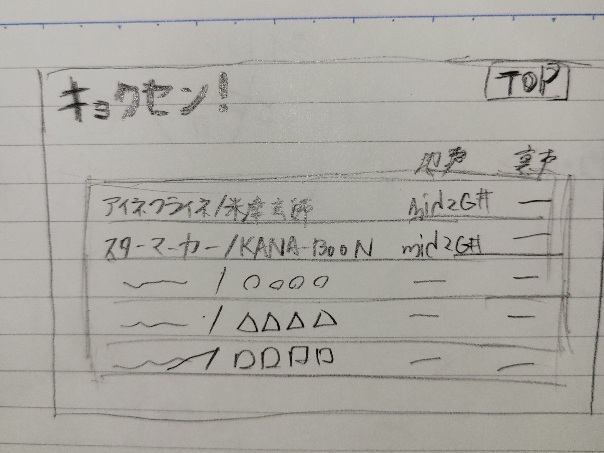 キョクセン! TOP
地声 裏声
アイネクライネ/米津玄師 mid2G# —
スターマーカー/KANA-BOON mid2G# —
〜〜 / ○○○○ — —
〜〜 / △△△△ — —
〜〜 / □□□□ — —